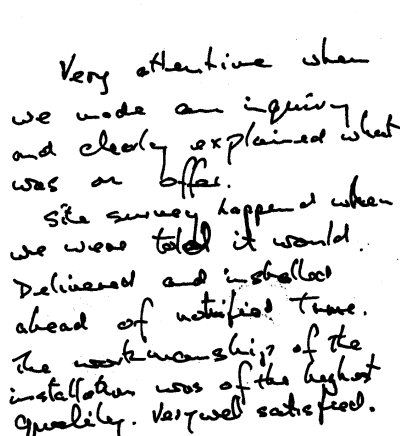 Very attentive when
we made an inquiry
and clearly explained what
was on offer.
Site survey happened when
we were told it would.
Delivered and installed
ahead of notified time.
The workmanship of the
installation was of the highest
quality. Very well satisfied.